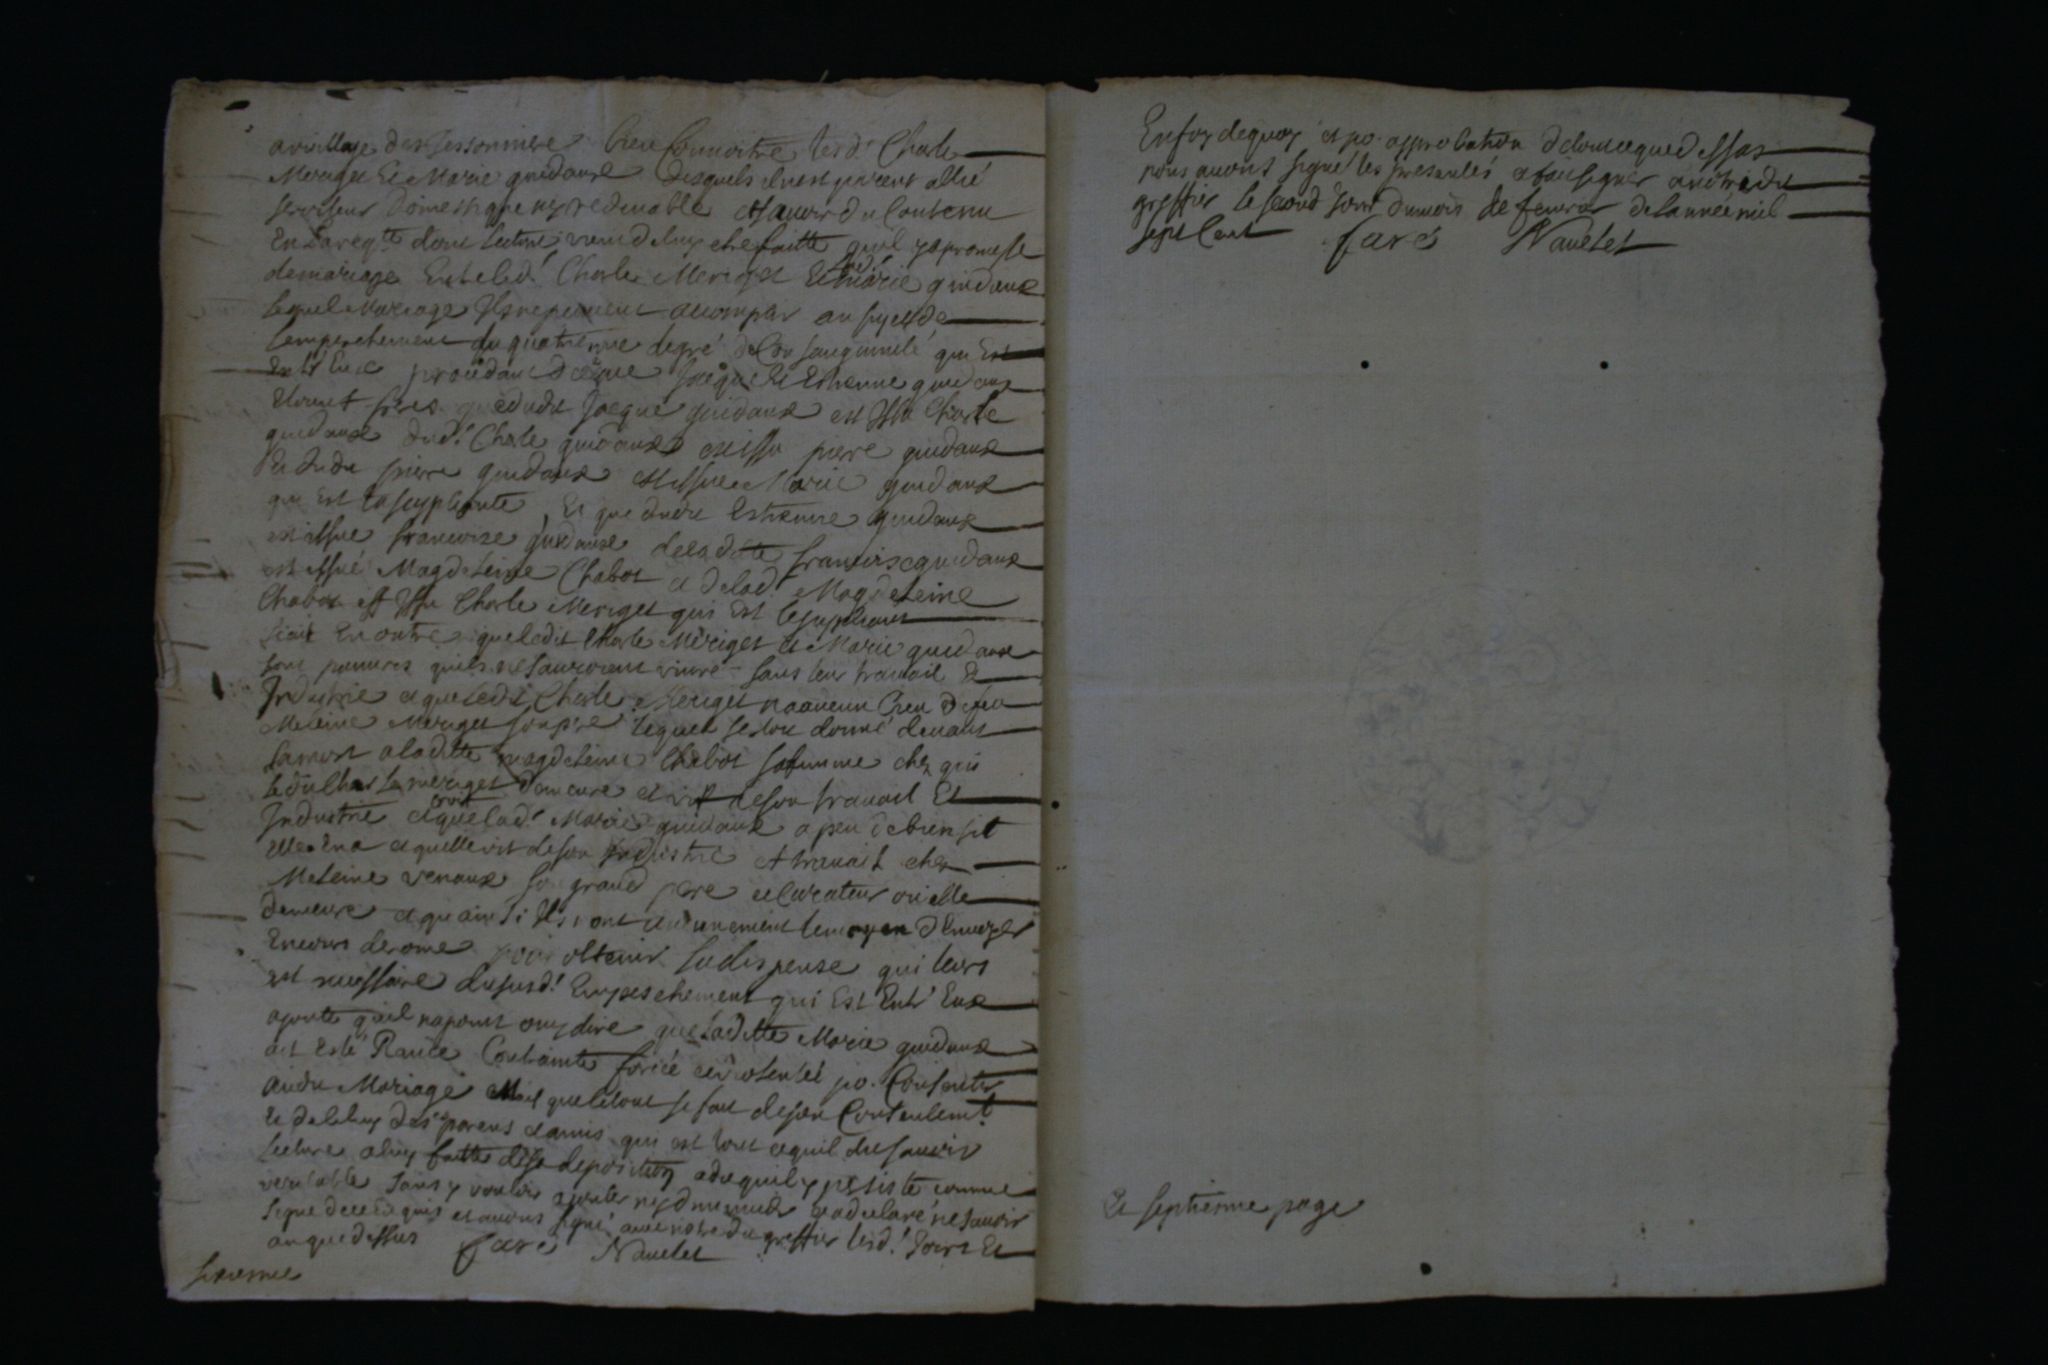 au village des Jessonniere bien Connoitre lesd. Charle
Meriget Et Marie guidaux desquels il nest parent allié
serviteur domestique ny redevable et scavoir du Contenu
En lareq.te dont lecture vien deluy estre faitte quil y a promesse
de mariage Entre led. Charle Meriget Et lad. marie guidaux
lequel Mariage Ils ne peuvent acomplir au sujet de
lempeschement du quatriesme degré de Consanguinité qui Est
Entr'Eux procedant de ce que Jacque Et Estienne guidaux
Etoient freres que dudit Jacque guidaux est Issu Charle
guidaux dud. Charle guidaux est issu pierre guidaux
Et dudit pierre guidaux est issue Marie guidaux
qui est la supliante Et que dudit Estienne guidaux
est issue francoise guidaux de laditte francoise guidaux
est issue Magdeleine Chabot et de lad. Magdeleine
Chabot est Issu Charle Meriget qui Est le supliant
scait En outre que ledit Charle Meriget et Marie guidaux
sont pauvres quils ne scauroient vivre sans leur travail Et
Industrie et que ledit Charle Meriget na aucun bien de feu
Meleine Meriget son pere lequel sestoit donné devant
sa mort a laditte magdeleine Chabot sa femme chez qui
ledit Charle meriget demeure et vit de son travail Et
Industrie et que lad. Marie guidaux a peu de bien sil
elle En a et quelle vit de son industrie et travail chez
Meleine venaux son grand pere et Curateur ou elle
demeure et qu'ainsi Ils nont aucunement le moyen d'Envoyer
En cour de rome pour obtenir la dispense qui leurs
est necessaire du susd. Empeschement qui Est Entr'Eux
ajoute quil na point ouy dire que laditte Marie guidaux
ait Esté Ravie Contrainte forcée et violentée po. Consentir
audit Mariage Mais que le tout se fait de son Consentem.t
Et de celuy des parens et amis qui est tout ce quil dit scavoir
lecture a luy faitte de sa deposition a dit quil y persiste comme
veritable sans y vouloir ajouter ny diminuer et a declaré ne scavoir
signe de ce Enquis et avons signé avec notredit greffier lesd. Jours Et
an que dessus faré Navelet
sixiesme
En foy de quoy et po. approbation de tout ce que dessus
nous avons signé les presentes et fait signer a notredit
greffier le second Jour du mois de fevrier de lannée mil
sept Cent faré Navelet
Et septiesme page